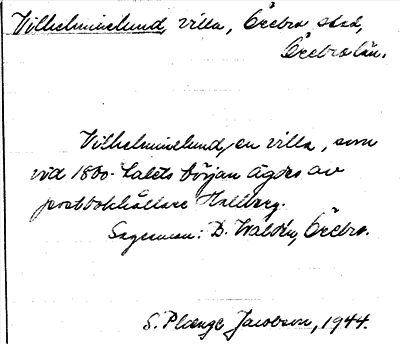 Vilhelminelund, villa, Örebro stad,
Örebro län.
Vilhelminelund, en villa, som
vid 1800-talets början ägdes av
postbokhållare Hallberg.
Sagesman: D. Waldén, Örebro.
S. Plænge Jacobson, 1944.